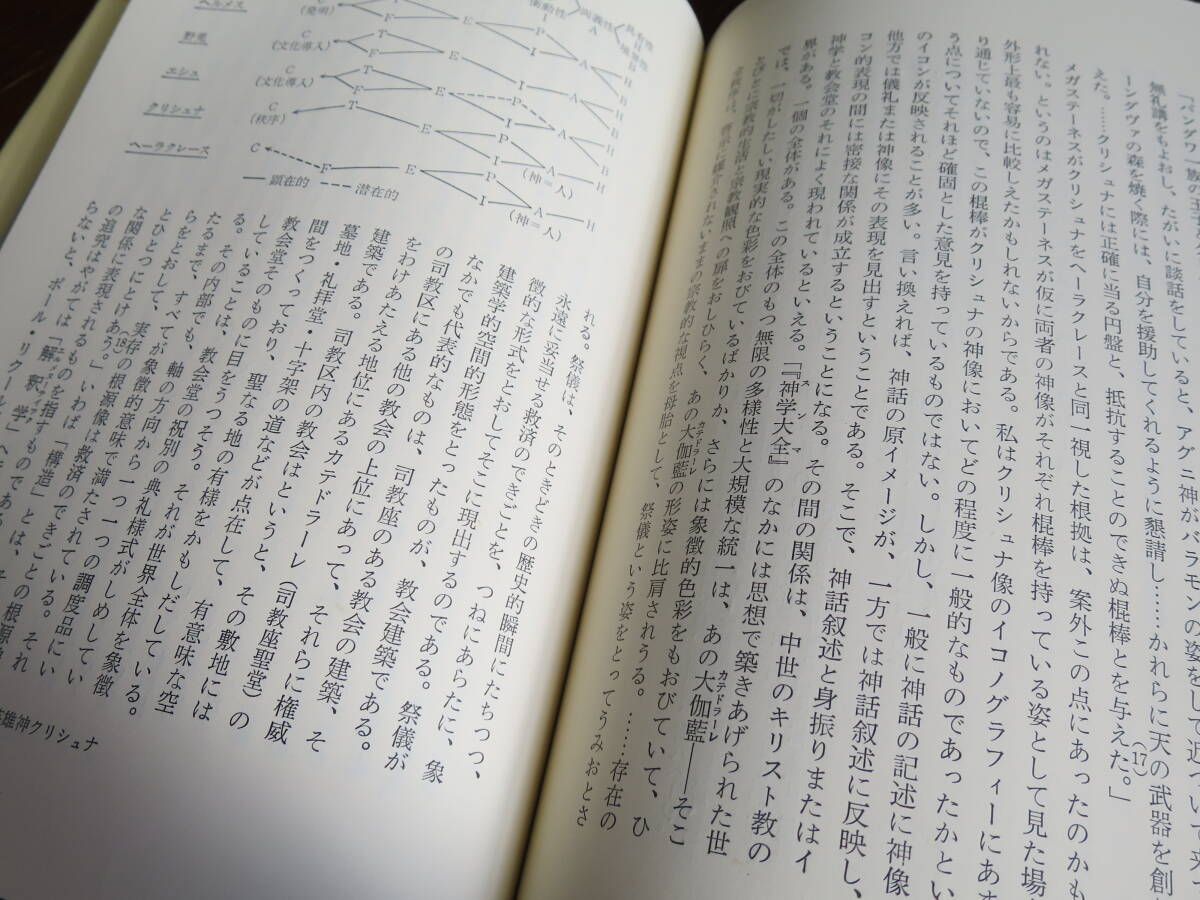 「パンダワ一族の
無礼講をもよおし、たがいに談話をしていると、アグニ神がバラモンの姿をして近づ
ーンダヴァの森を焼く際には、自分を援助してくれるように懇請し……かれらに天の武器を創
えた。……クリシュナには正確に当る円盤と、抵抗することのできぬ棍棒とを与えた。」(17)
メガステーネスがクリシュナをヘーラクレースと同一視した根拠は、案外この点にあったのかも
れない。というのはメガステーネスが仮に両者の神像がそれぞれ棍棒を持っている姿として見た場
外形上最も容易に比較しえたかもしれないからである。私はクリシュナ像のイコノグラフィーにあ
り通じていないので、この棍棒がクリシュナの神像においてどの程度に一般的なものであったかとい
う点についてそれほど確固とした意見を持っているものではない。しかし、一般に神話の記述に神像
のイコンが反映されることが多い。言い換えれば、神話の原イメージが、一方では神話叙述に反映し、
他方では儀礼または神像にその表現を見出すということである。そこで、神話叙述と身振りまたはイ
コン的表現の間には密接な関係が成立するということになる。その間の関係は、中世のキリスト教の
神学と教会堂のそれによく現われているといえる。『神学大全』のなかには思想で築きあげられた世
スンマ
界がある。一個の全体がある。この全体のもつ無限の多様性と大規模な統一は、あの大伽藍――そこ
カテドラーレ
では、一切がしたしい現実的な色彩をおびているばかりか、さらには象徴的色彩をもおびていて、ひ
とびとに宗教的生活と宗教観照への扉をおしひらく、あの大伽藍の形姿に比肩されうる。……存在の
カテドラーレ
宗教的な視点を母胎として、祭儀という姿をとってうみおとさ
れる。祭儀は、そのときどきの歴史的瞬間にたちつつ、
永遠に妥当せる救済のできごとを、つねにあらたに、象
徴的な形式をとおしてそこに現出するのである。祭儀が
建築学的空間的形態をとったものが、教会建築である。
なかでも代表的なものは、司教座のある教会の建築、そ
の司教区にある他の教会の上位にあって、それらに権威
をわけあたえる地位にあるカテドラーレ（司教座聖堂）の
建築である。司教区内の教会はというと、その敷地には
墓地・礼拝堂・十字架の道などが点在して、有意味な空
間をつくっており、聖なる地の有様をかもしだしている。
教会堂そのものに目をうつそう。それが世界全体を象徴
していることは、軸の方向から一つ一つの調度品にい
る。その内部でも、教会堂の祝別の典礼様式がしめしてい
たるまで、すべてが象徴的意味で満たされている。それ
らをとおして、実存の根源像は救済のできごとの根源
とひとつにとけあう。」(18)いわば「構造」とは、そ
な関係に表現されるものを指すものである
の追究はやがてはポール・リクール
らないと、「解釈学」
英雄神クリシュナ
ヘルメス
C
(発明)
T
F
E
P
I
衝動性
両義性
A
境界性
H
野兎
C
(文化導入)
T
F
E
P
I
A
H
エシュ
C
(文化導入)
T
F
E
P
I
A
H
クリシュナ
C
(秩序)
T
E
P
I
A
(神=人)
H
ヘーラクレース
C
F
E
P
I
A
(神=人)
H
顕在的
潜在的